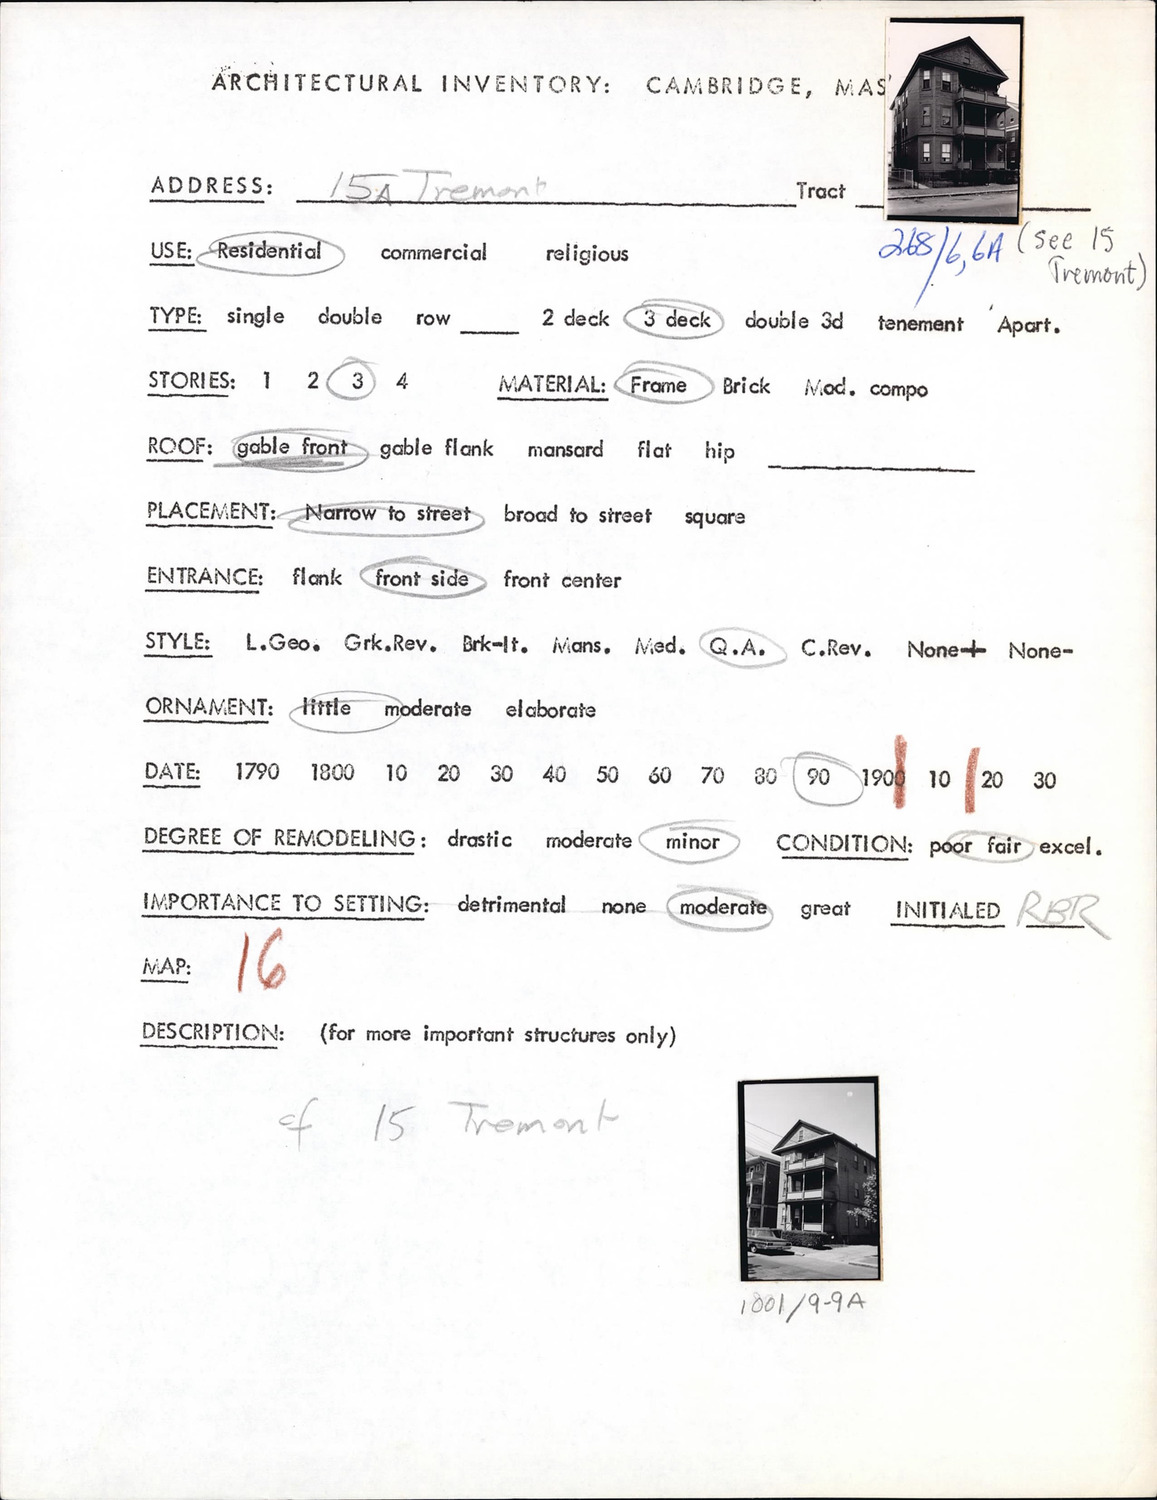 ARCHITECTURAL INVENTORY: CAMBRIDGE, MAS
ADDRESS: 15A Tremont Tract
268/6,6A (see 15 Tremont)
USE: Residential commercial religious
TYPE: single double row ____ 2 deck 3 deck double 3d tenement Apart.
STORIES: 1 2 3 4 MATERIAL: Frame Brick Mod. compo
ROOF: gable front gable flank mansard flat hip
PLACEMENT: Narrow to street broad to street square
ENTRANCE: flank front side front center
STYLE: L.Geo. Grk.Rev. Brk-It. Mans. Med. Q.A. C.Rev. None+ None-
ORNAMENT: little moderate elaborate
DATE: 1790 1800 10 20 30 40 50 60 70 80 90 1900 10 20 30
DEGREE OF REMODELING: drastic moderate minor CONDITION: poor fair excel.
IMPORTANCE TO SETTING: detrimental none moderate great INITIALED RBR
MAP: 16
DESCRIPTION: (for more important structures only)
cf 15 Tremont
1001/9-9A